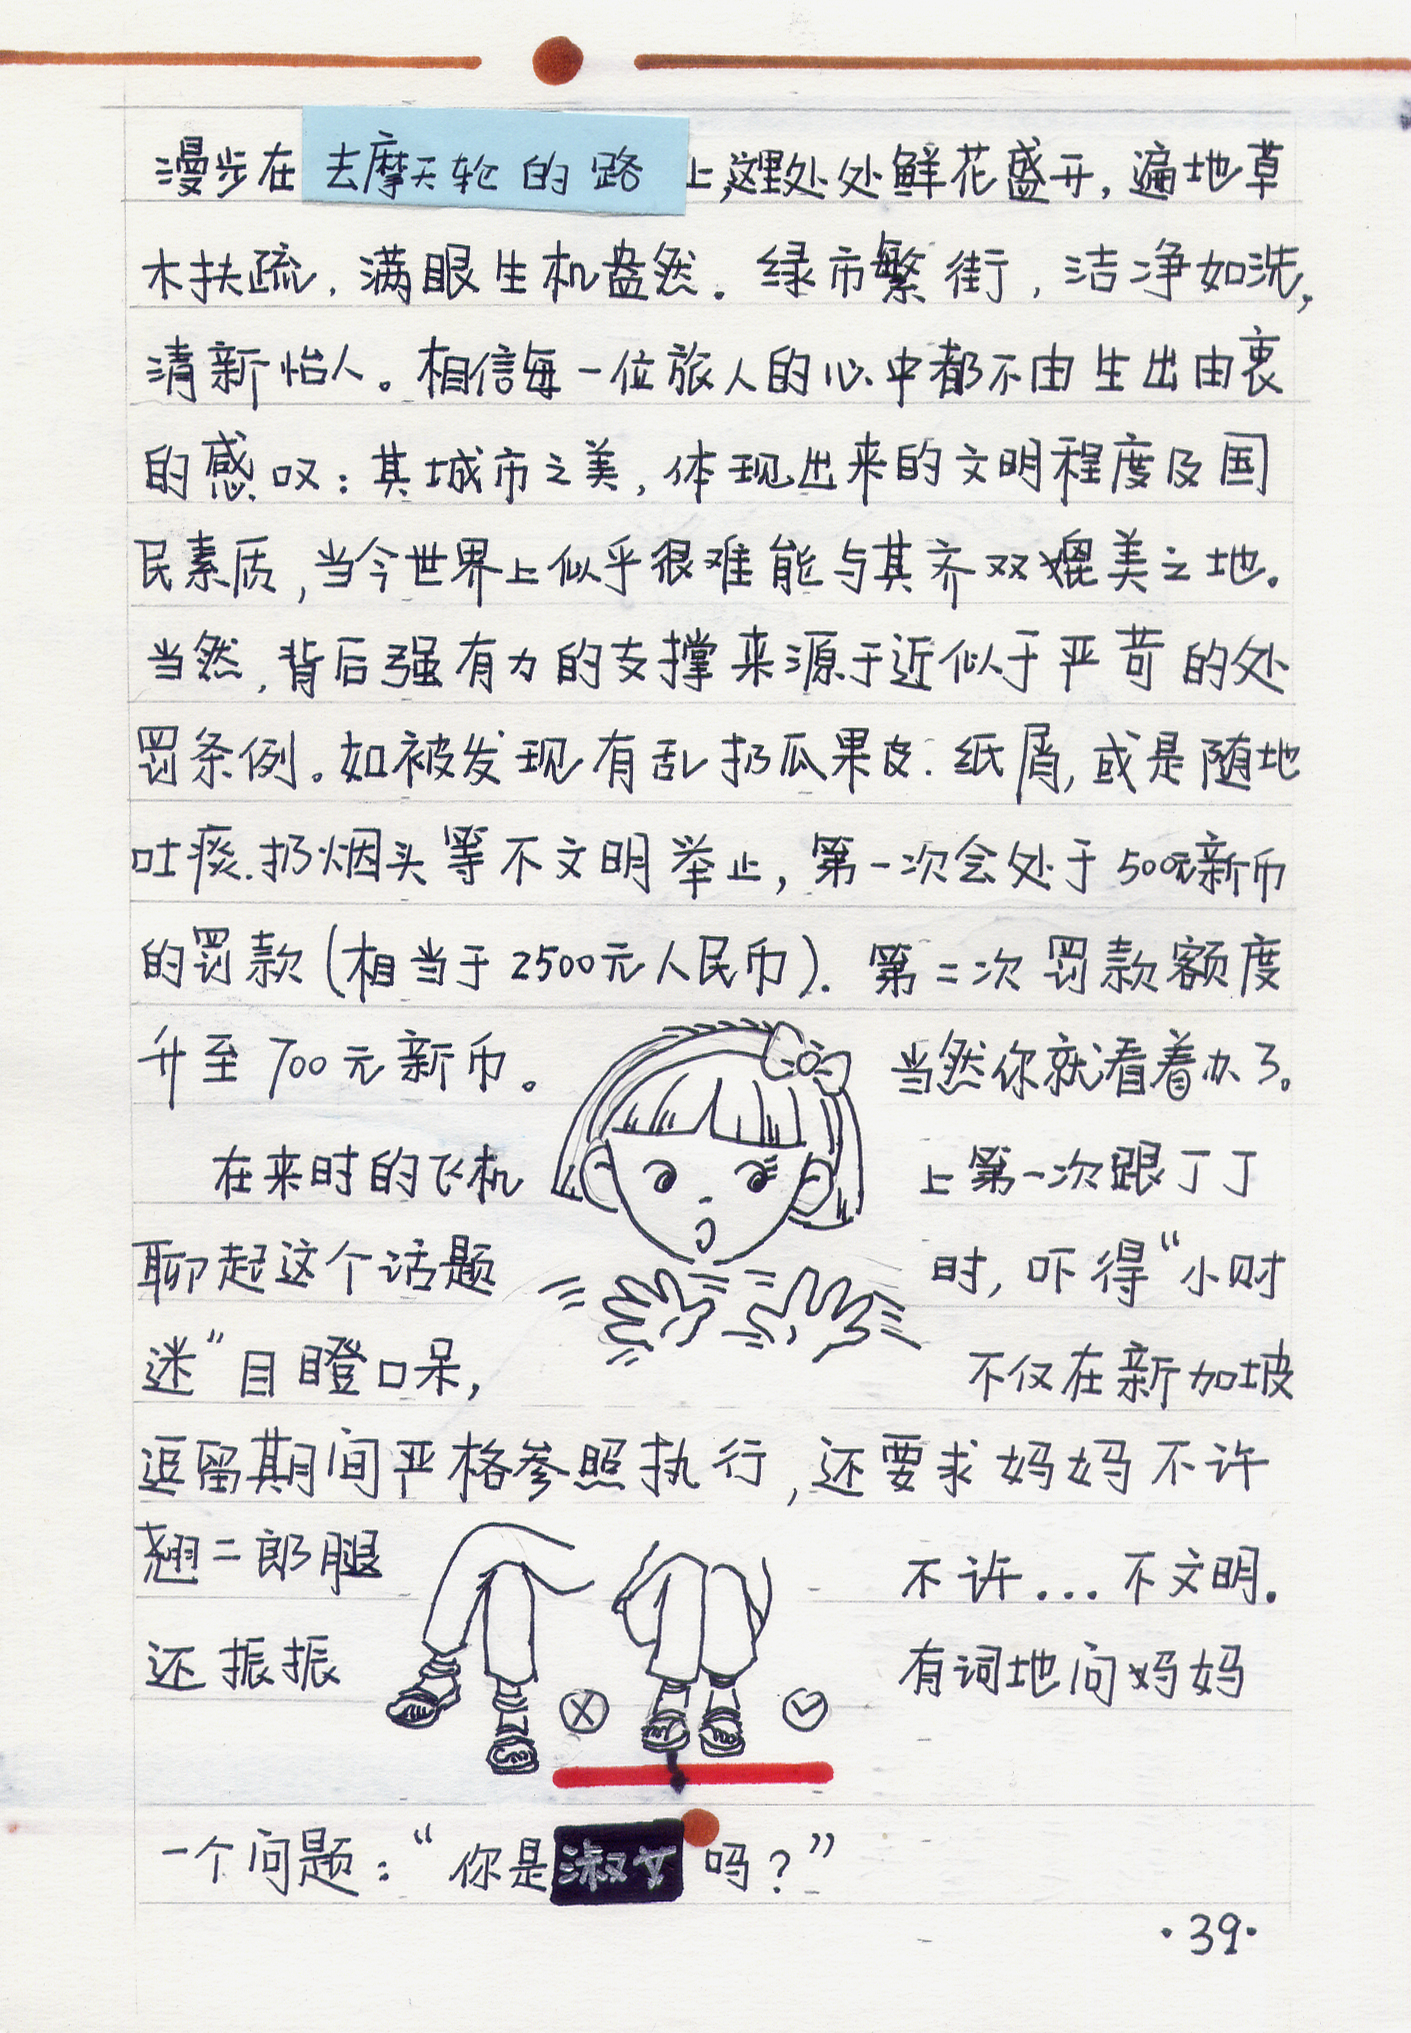 漫步在去摩天轮的路上,这里处处鲜花盛开,遍地草
木扶疏,满眼生机盎然。绿市繁街,洁净如洗,
清新怡人。相信每一位旅人的心中都不由生出由衷
的感叹:其城市之美,体现出来的文明程度及国
民素质,当今世界上似乎很难能与其齐双媲美之地。
当然,背后强有力的支撑来源于近似于严苛的处
罚条例。如被发现有乱扔瓜果皮.纸屑,或是随地
吐痰.扔烟头等不文明举止,第一次会处于500元新币
的罚款(相当于2500元人民币).第二次罚款额度
升至700元新币。当然你就看着办了。
在来时的飞机上第一次跟丁丁
聊起这个话题时,吓得“小财
迷”目瞪口呆,不仅在新加坡
逗留期间严格参照执行,还要求妈妈不许
翘二郎腿不许...不文明.
还振振有词地问妈妈
一个问题:“你是淑女吗?”
·39·